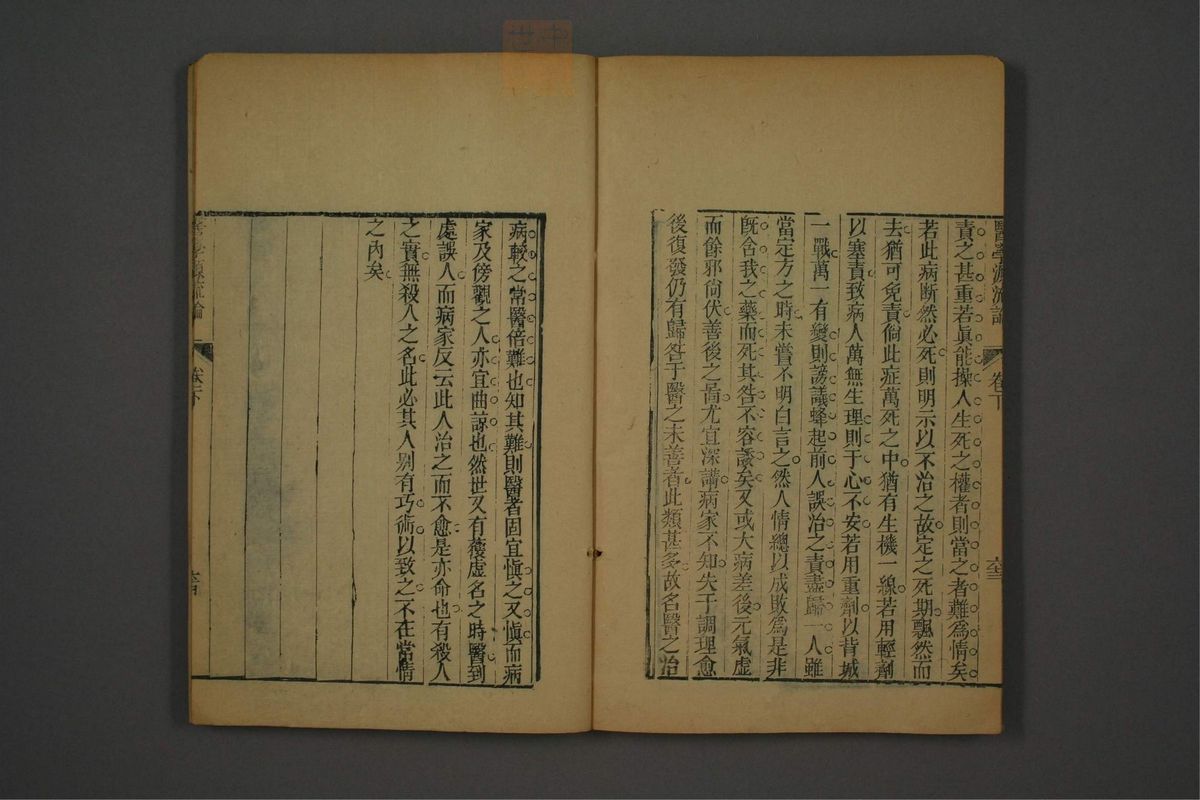 醫學源流論
卷下
責之甚重若眞能操人生死之權者則當之者難爲情矣
若此病断然必死則明示以不治之故定之死期飄然而
去猶可免責倘此症萬死之中猶有生機一線若用輕劑
以塞責致病人萬無生理則于心不安若用重劑以背城
一戰萬一有變則謗議蜂起前人誤治之責盡歸一人雖
當定方之時未嘗不明白言之然人情總以成敗爲是非
旣含我之藥而死其咎不容諉矣又或大病差後元氣虛
而餘邪尙伏善後之啚尤宜深講病家不知失于調理愈
後復發仍有歸咎于醫之未善者此類甚多故名醫之治
病較之常醫倍難也知其難則醫者固宜慎之又愼而病
家及傍觀之人亦宜曲諒也然世又有獲虛名之時醫到
處誤人而病家反云此人治之而不愈是亦命也有殺人
之實無殺人之名此必其人別有巧術以致之不在常情
之內矣